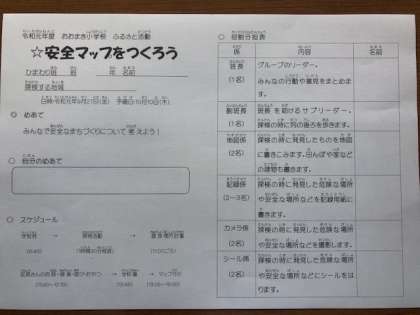 令和元年度 おおまき小学校 ふるさと活動
☆安全マップをつくろう
ひまわり班 班 年 名前
探検する地域
日時:令和元年9月27日(金) 予備日:10月10日(木)
○ めあて
みんなで安全なまちづくりについて 考えよう!
○ 自分のめあて
○ スケジュール
学校発 → 探検活動 →
○ 役割分担表
係 内容 名前
班長
(1名)
グループのリーダー。
みんなの行動や意見をまとめます。
副班長
(1名)
班長を助けるサブリーダー。
探検の時に列の後ろを歩きます。
地図係
(2名)
探検の時に発見したものを地図
に書きこみます。田んぼや家など
の建物も書きます。
記録係
(2~3名)
探検の時に発見した危険な場所
や安全な場所などを記録用紙に
書きます。
カメラ係
(2名)
探検の時に発見した危険な場所
や安全な場所などを撮影します。
シール係
(2名)
探検の時に発見した危険な場所
や安全な場所などにシールをは
ります。